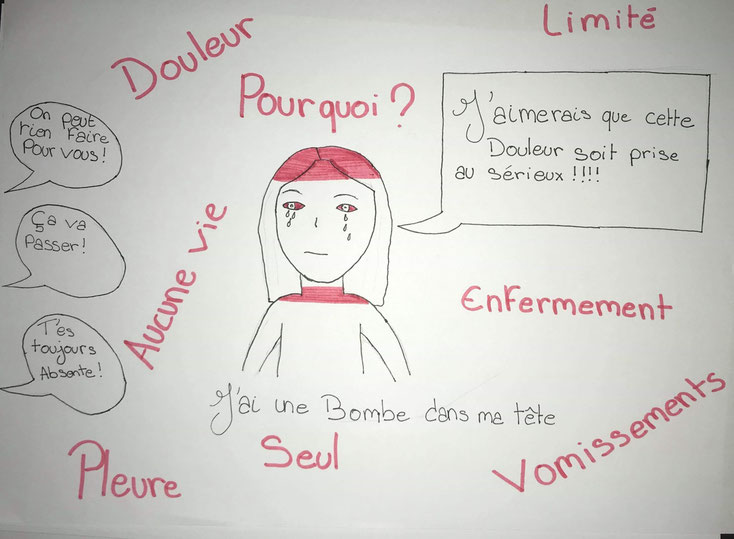 Limité
Douleur
Pourquoi ?
On peut
rien faire
Pour vous !
J'aimerais que cette
Douleur soit prise
au sérieux !!!!
Ça va
Passer !
Aucune vie
Enfermement
T'es
toujours
Absente !
J'ai une Bombe dans ma tête
Seul
Vomissements
Pleure